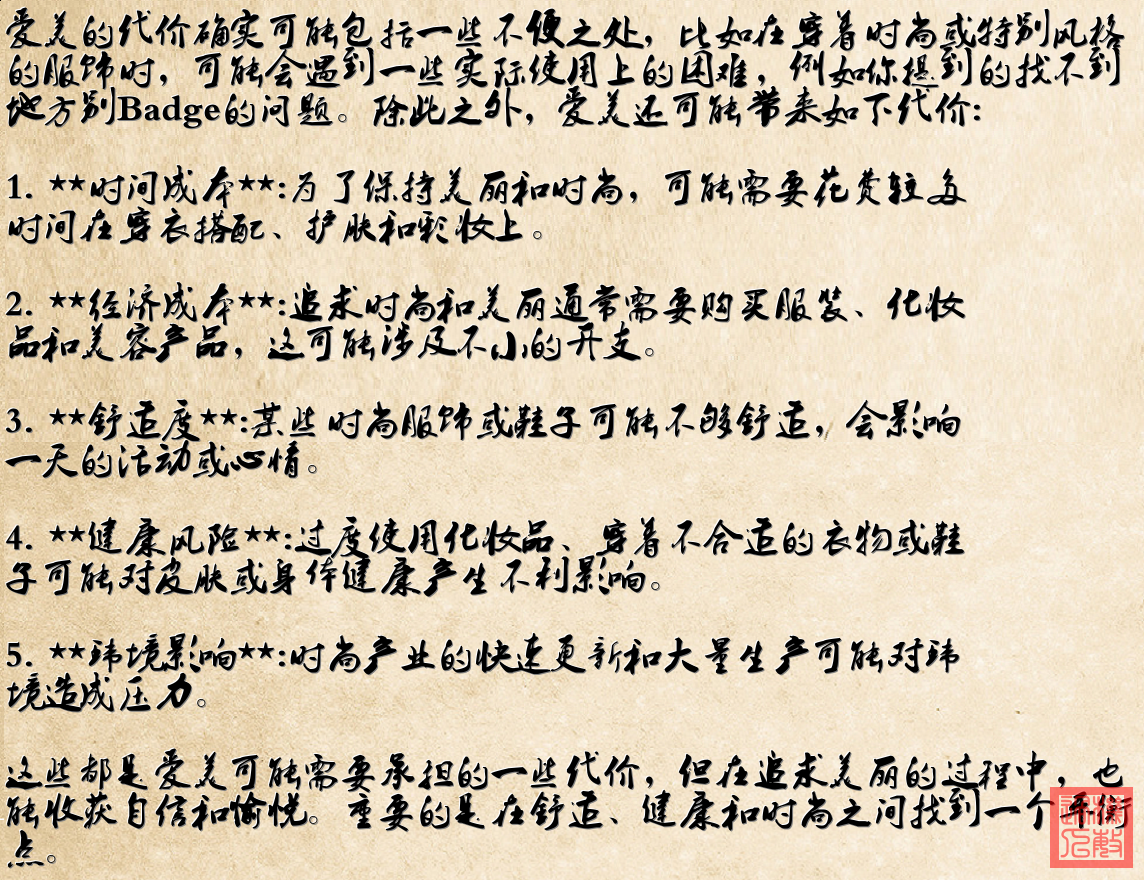 爱美的代价确实可能包括一些不便之处，比如在穿着时尚或特别风格
的服饰时，可能会遇到一些实际使用上的困难，例如你提到的找不到
地方别Badge的问题。除此之外，爱美还可能带来如下代价：
1. **时间成本**:为了保持美丽和时尚，可能需要花费较多
时间在穿衣搭配、护肤和彩妆上。
2. **经济成本**:追求时尚和美丽通常需要购买服装、化妆
品和美容产品，这可能涉及不小的开支。
3. **舒适度**:某些时尚服饰或鞋子可能不够舒适，会影响
一天的活动或心情。
4. **健康风险**:过度使用化妆品、穿着不合适的衣物或鞋
子可能对皮肤或身体健康产生不利影响。
5. **环境影响**:时尚产业的快速更新和大量生产可能对环
境造成压力。
这些都是爱美可能需要承担的一些代价，但在追求美丽的过程中，也
能收获自信和愉悦。重要的是在舒适、健康和时尚之间找到一个平衡
点。